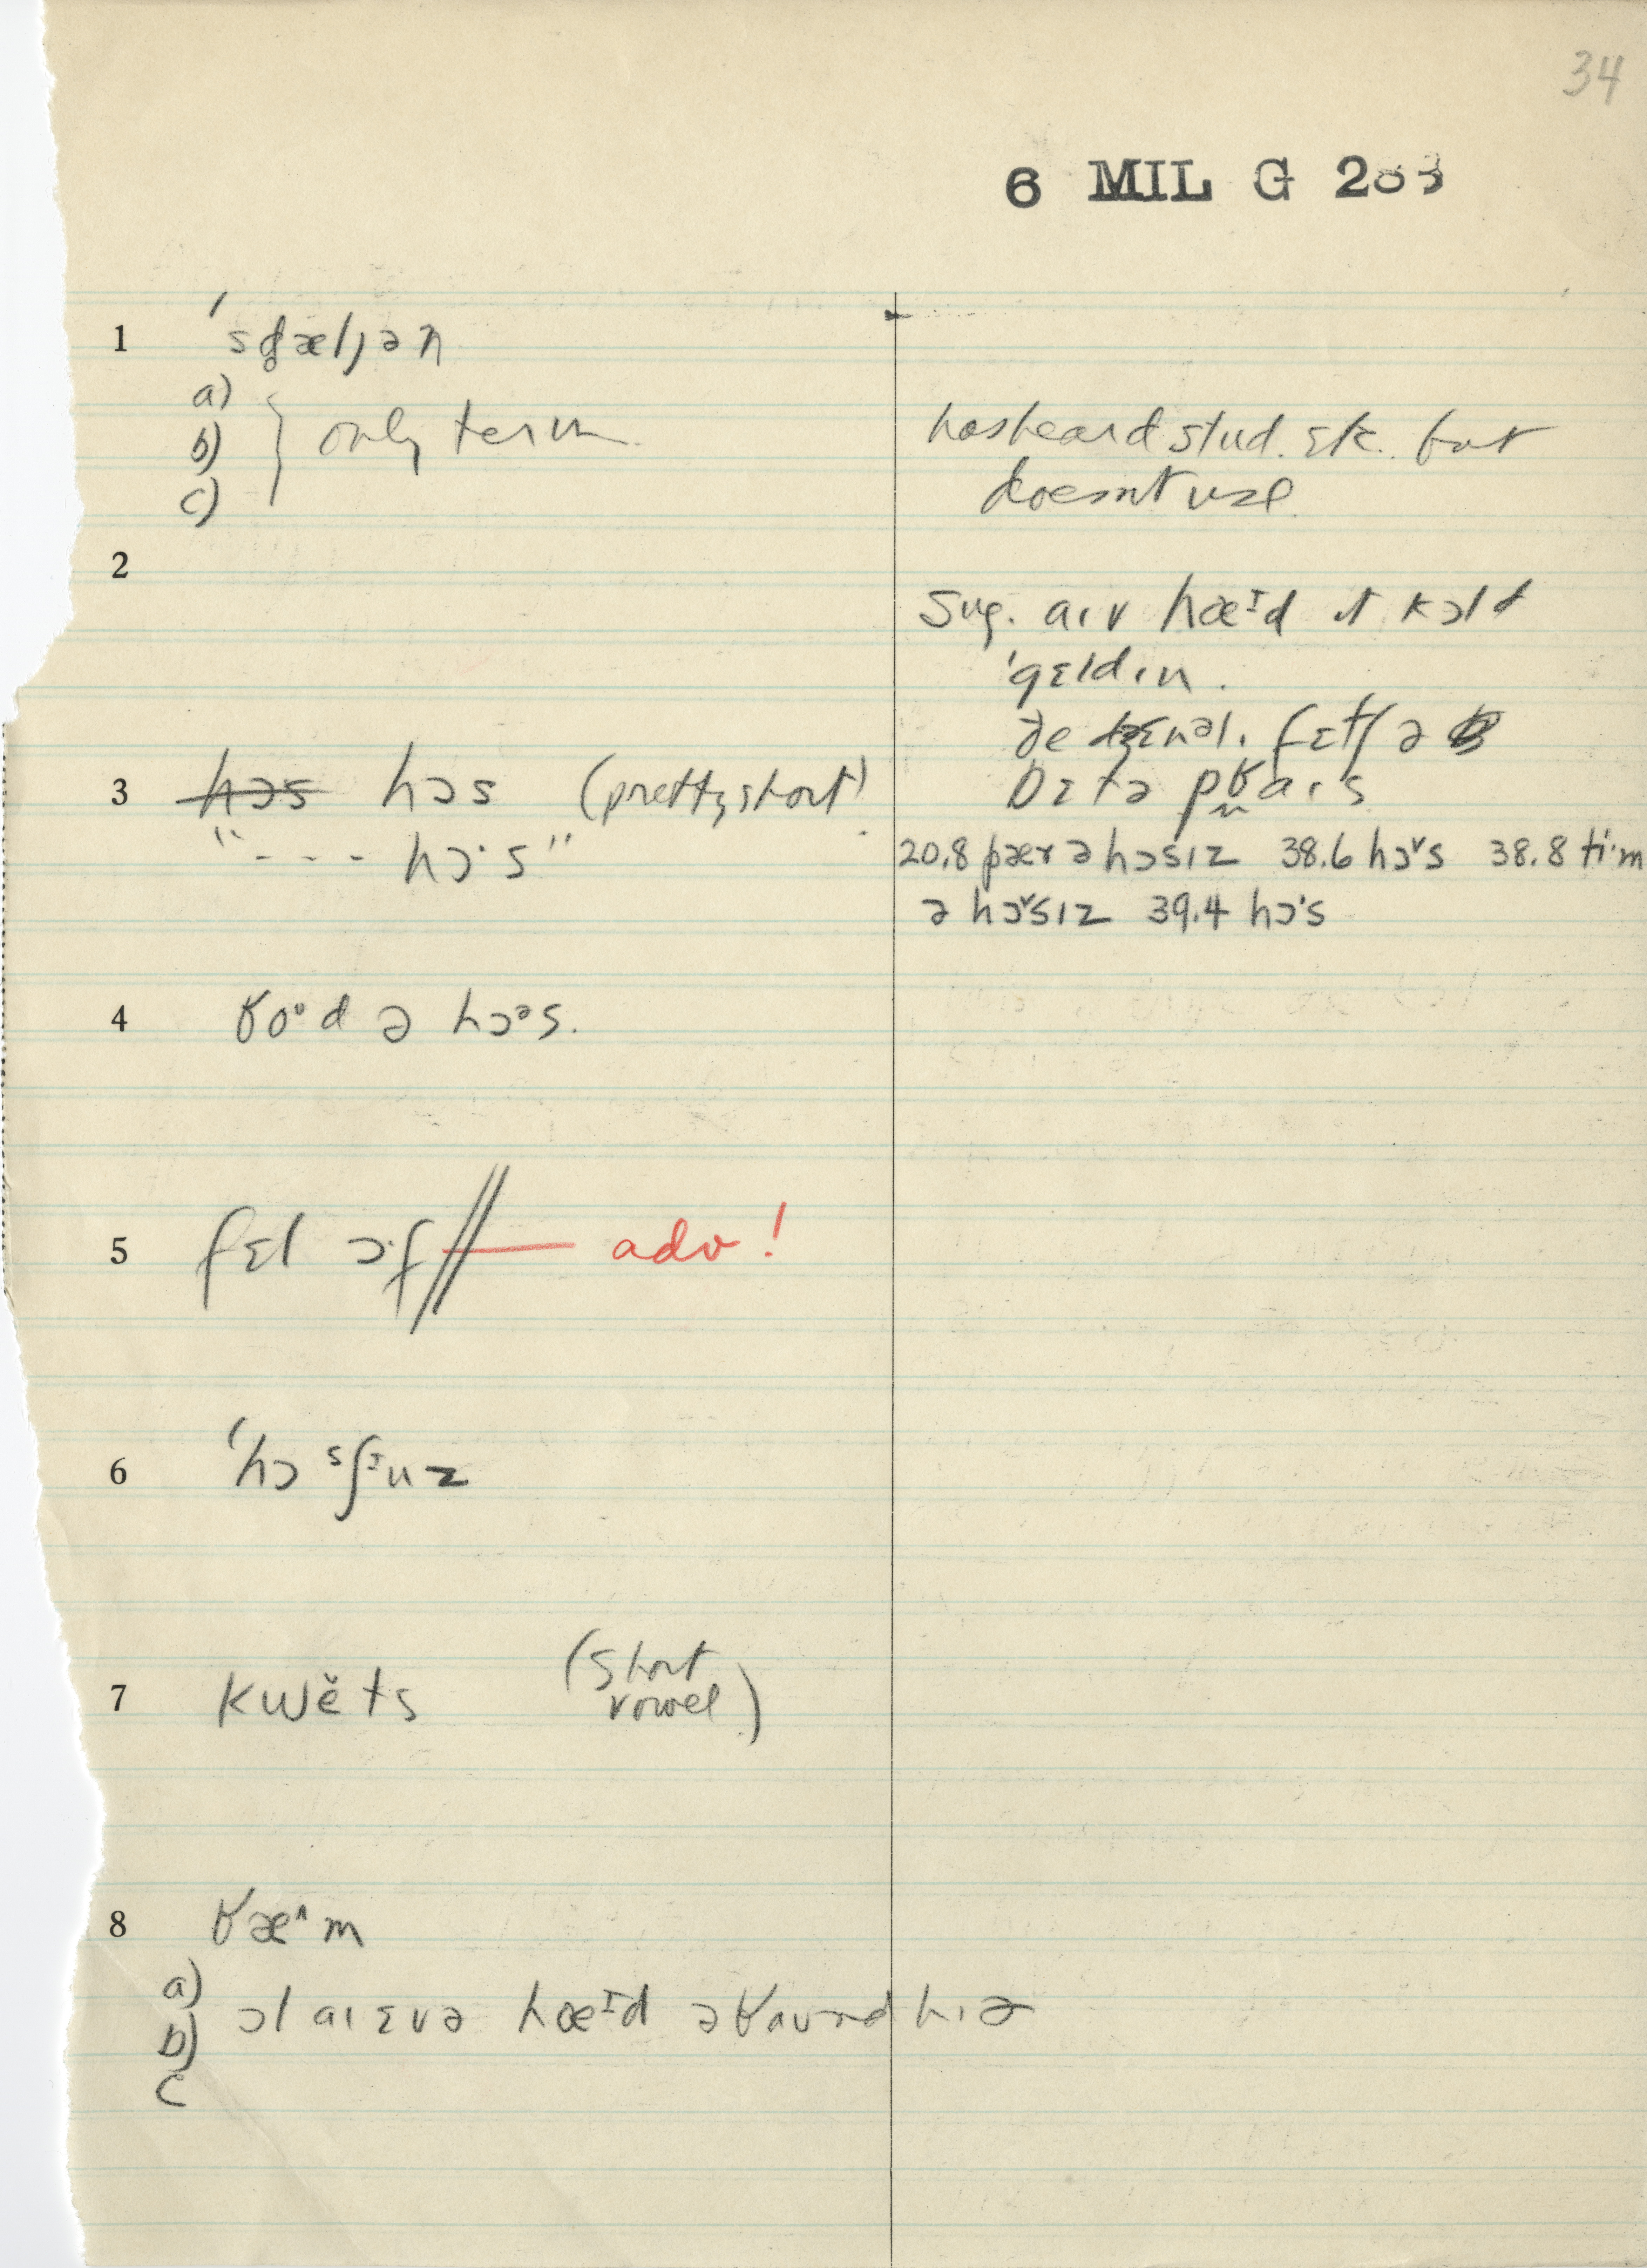 34
6 MIL G 203
1 ˈsd̥æljən
a)
b) } only term
c)
has heard stud. etc. but
doesn't use
2
Sug. aɪv hæɪd ɪt kɔld
ˈgɛldɪn.
fɛtʃ ə
bɛtə pʁaɪs
3 hɔs hɔs (pretty short)
"--- hɔ·s"
20.8 pær ə hɔsɪz 38.6 hɔ˅s 38.8 ti·m
ə hɔ˅sɪz 39.4 hɔ·s
4 ʁoᵘd ə hɔᵊs.
5 fɛl ɔ·f // — adv!
6 ˈhɔˢʃᶦuz
7 kwĕts (short
vowel)
8 ʁæ^m
a)
b) ɔl aɪ ɛvə hæɪd əʁaund hɪə
c